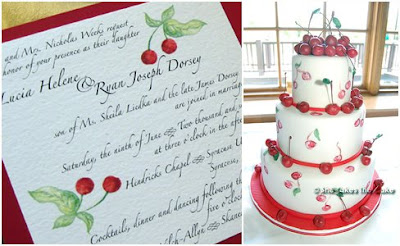 and Mrs. Nicholas Weeks request
honor of your presence as their daughter
Lucia Helene
@ Ryan Joseph Dorsey
son of Ms. Sheila Liedka and the late James Dorsey
are joined in marriage
Saturday, the ninth of June
Two thousand and
at three o'clock in the after
Hendricks Chapel
Syracuse U
Syracuse,
Cocktails, dinner and dancing following the
five o'clock
Shane
©
takes the Cake